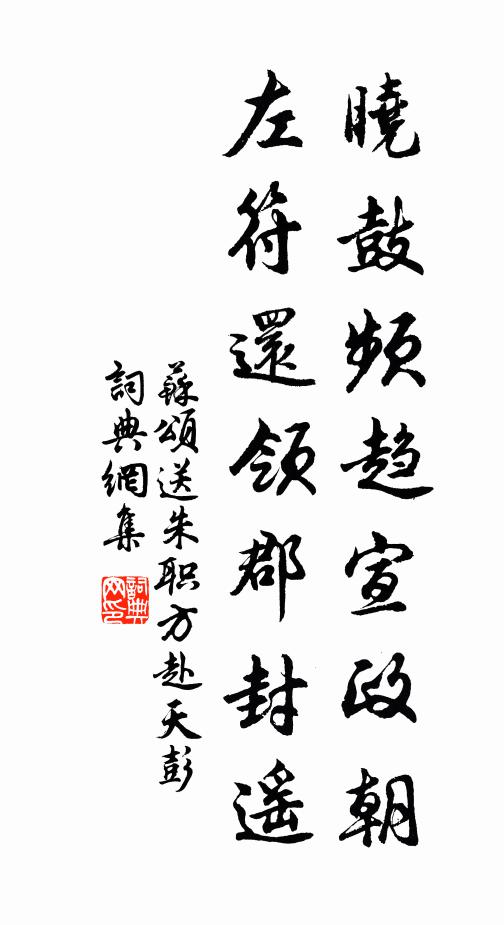 曉鼓頻趋宣政朝
左符還領郡封遥
蘇頌送朱职方赴天彭
詞典網集
詞典
网印